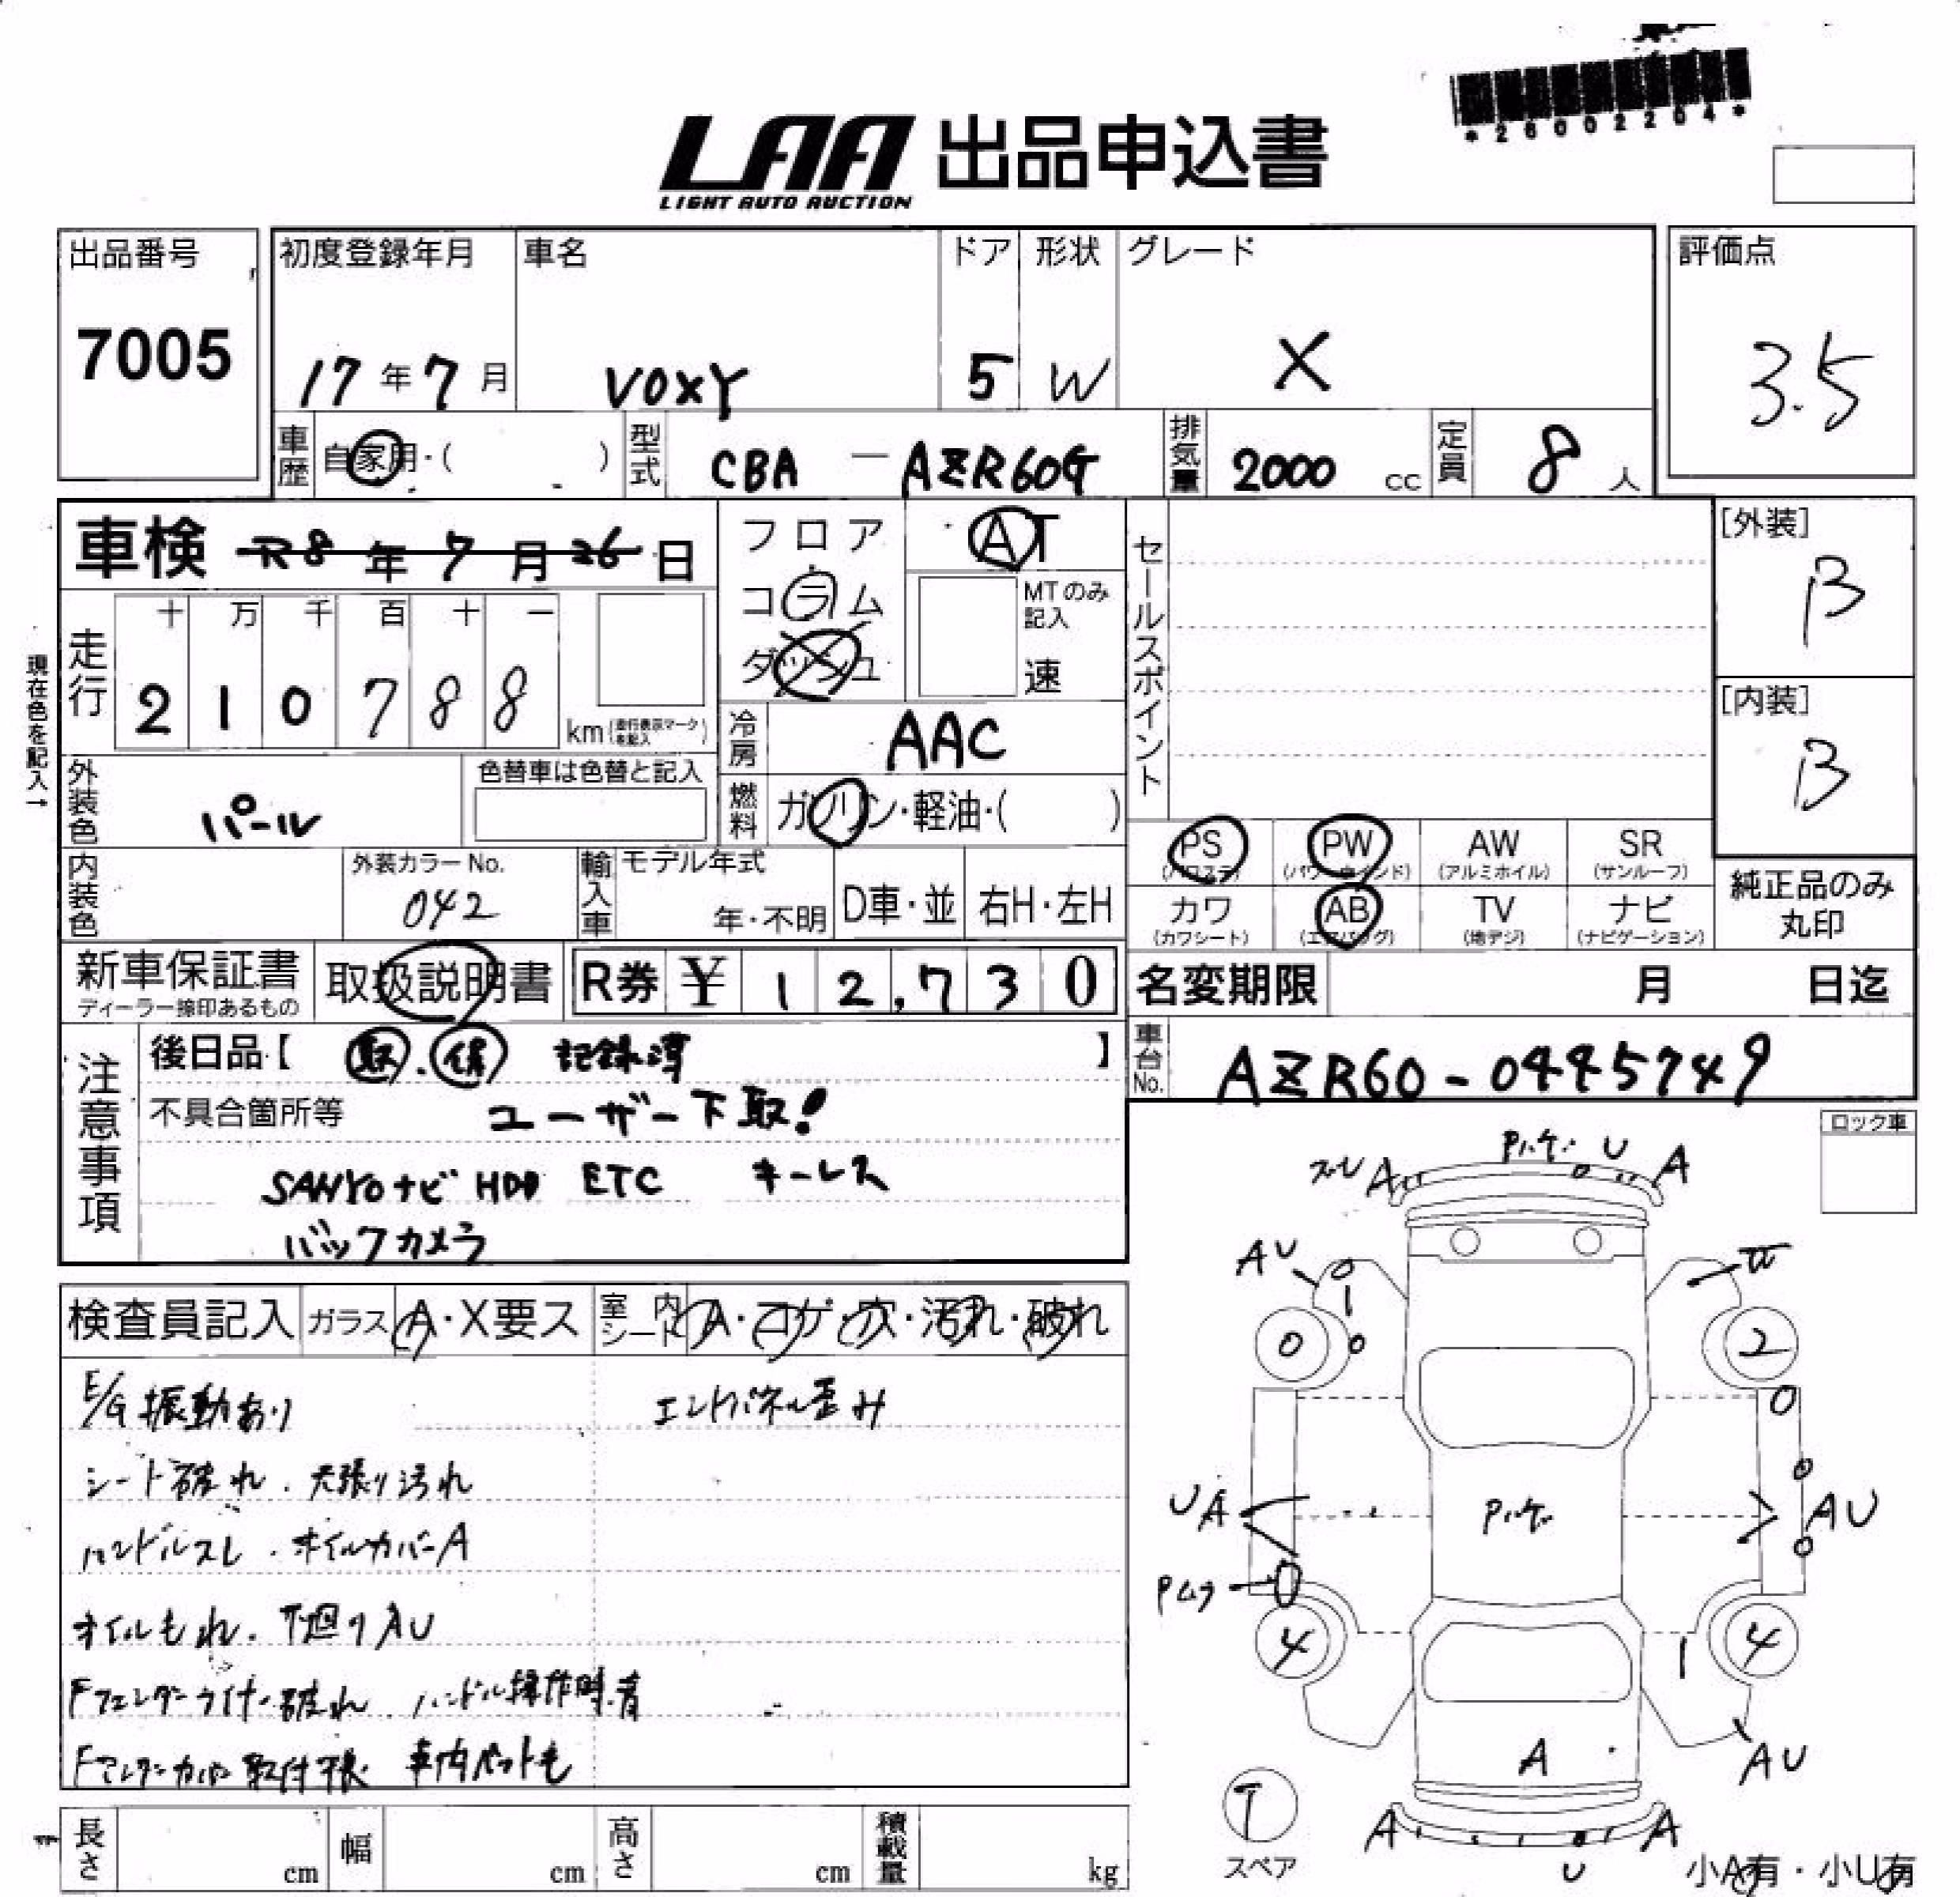 *26002204*
LAA 出品申込書
LIGHT AUTO AUCTION
出品番号 初度登録年月 車名 ドア 形状 グレード 評価点
7005 17年7月 VOXY 5 W X 3.5
車歴 自家用・( ) 型式 CBA - AZR60G 排気量 2000 cc 定員 8 人
車検 R8年7月26日
フロア
コラム
ダッシュ
AT
MTのみ記入
速
セールスポイント
[外装]
B
[内装]
B
現在色を記入→
走行 十 万 千 百 十 一
2 1 0 7 8 8 km (走行表示マークを記入)
冷房 AAC
外装色 パール 色替車は色替と記入
燃料 ガソリン・軽油・( )
PS (パワステ) PW (パワーウインド) AW (アルミホイル) SR (サンルーフ)
カワ (カワシート) AB (エアバッグ) TV (地デジ) ナビ (ナビゲーション)
純正品のみ
丸印
内装色 外装カラーNo. 042 輸入車 モデル年式 年・不明 D車・並 右H・左H
新車保証書 ディーラー捺印あるもの 取扱説明書 R券 ¥ 12,730 名変期限 月 日迄
車台No. AZR60-0445749
注意事項
後日品【 取.保 記録簿 】
不具合箇所等 ユーザー下取!
SANYOナビ HDD ETC キーレス
バックカメラ
ロック車
検査員記入 ガラス A・X要ス 室内シート A・コゲ・穴・汚れ・破れ
E/G振動あり エンドパネル歪み
シート破れ.天張り汚れ
ハンドルスレ.オイルカバーA
オイルもれ.下廻りAU
Fフェンダーライナー破れ.ハンドル操作時.音
取付 車内ペット毛
スレ A Pハゲ U A
AU
0 1 0 0 2
0
UA Pハゲ 0 AU
0
Pムラ 0
4 1 4
A AU
T
スペア
A U A
小A有・小U有
長さ cm 幅 cm 高さ cm 積載量 kg